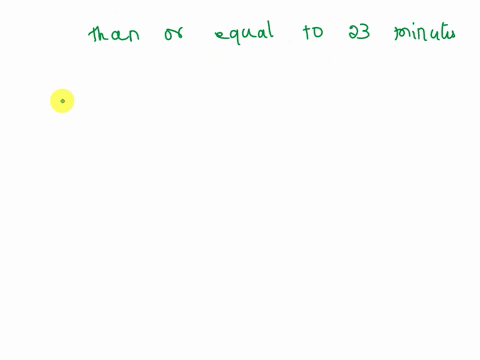 than or equal to 23 minutes